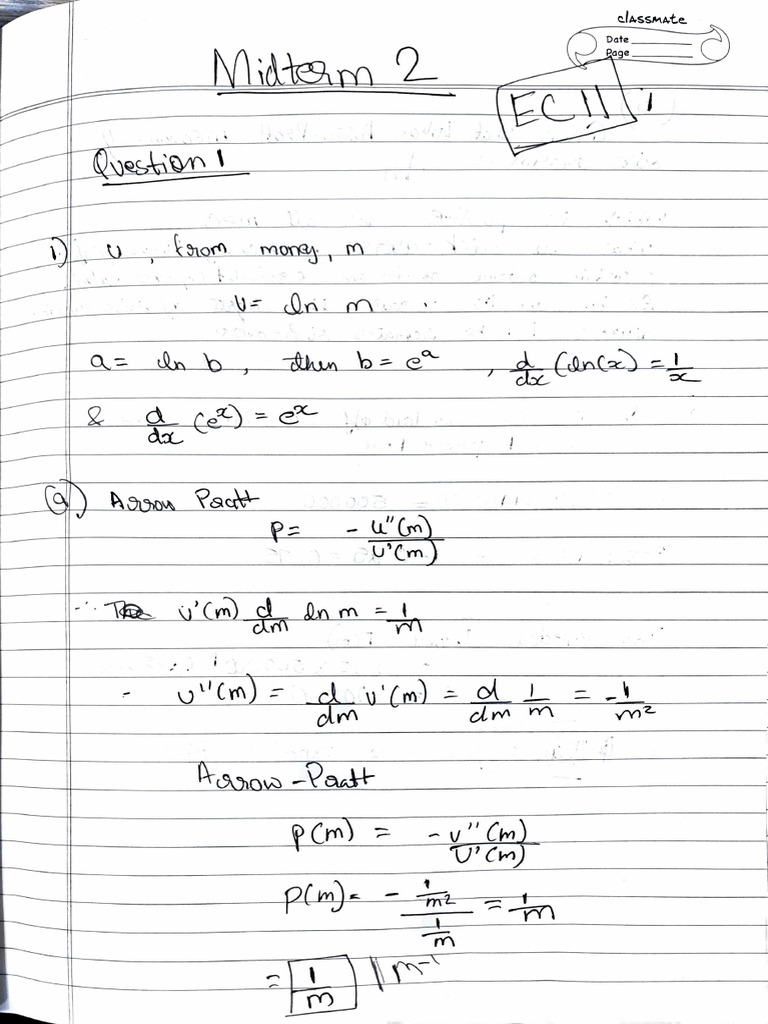 classmate
Date
Page
Midterm 2
EC!!
Question 1
1) U, from money, m
U = ln m
a = ln b, then b = e^a, d/dx (ln(x) = 1/x
& d/dx (e^x) = e^x
(a) Arrow Pratt
P = - U''(m)/U'(m)
U'(m) d/dm ln m = 1/m
U''(m) = d/dm U'(m) = d/dm 1/m = -1/m²
Arrow-Pratt
P(m) = -U''(m)/U'(m)
P(m) = - (1/m²)/(1/m) = 1/m
= 1/m || m⁻¹